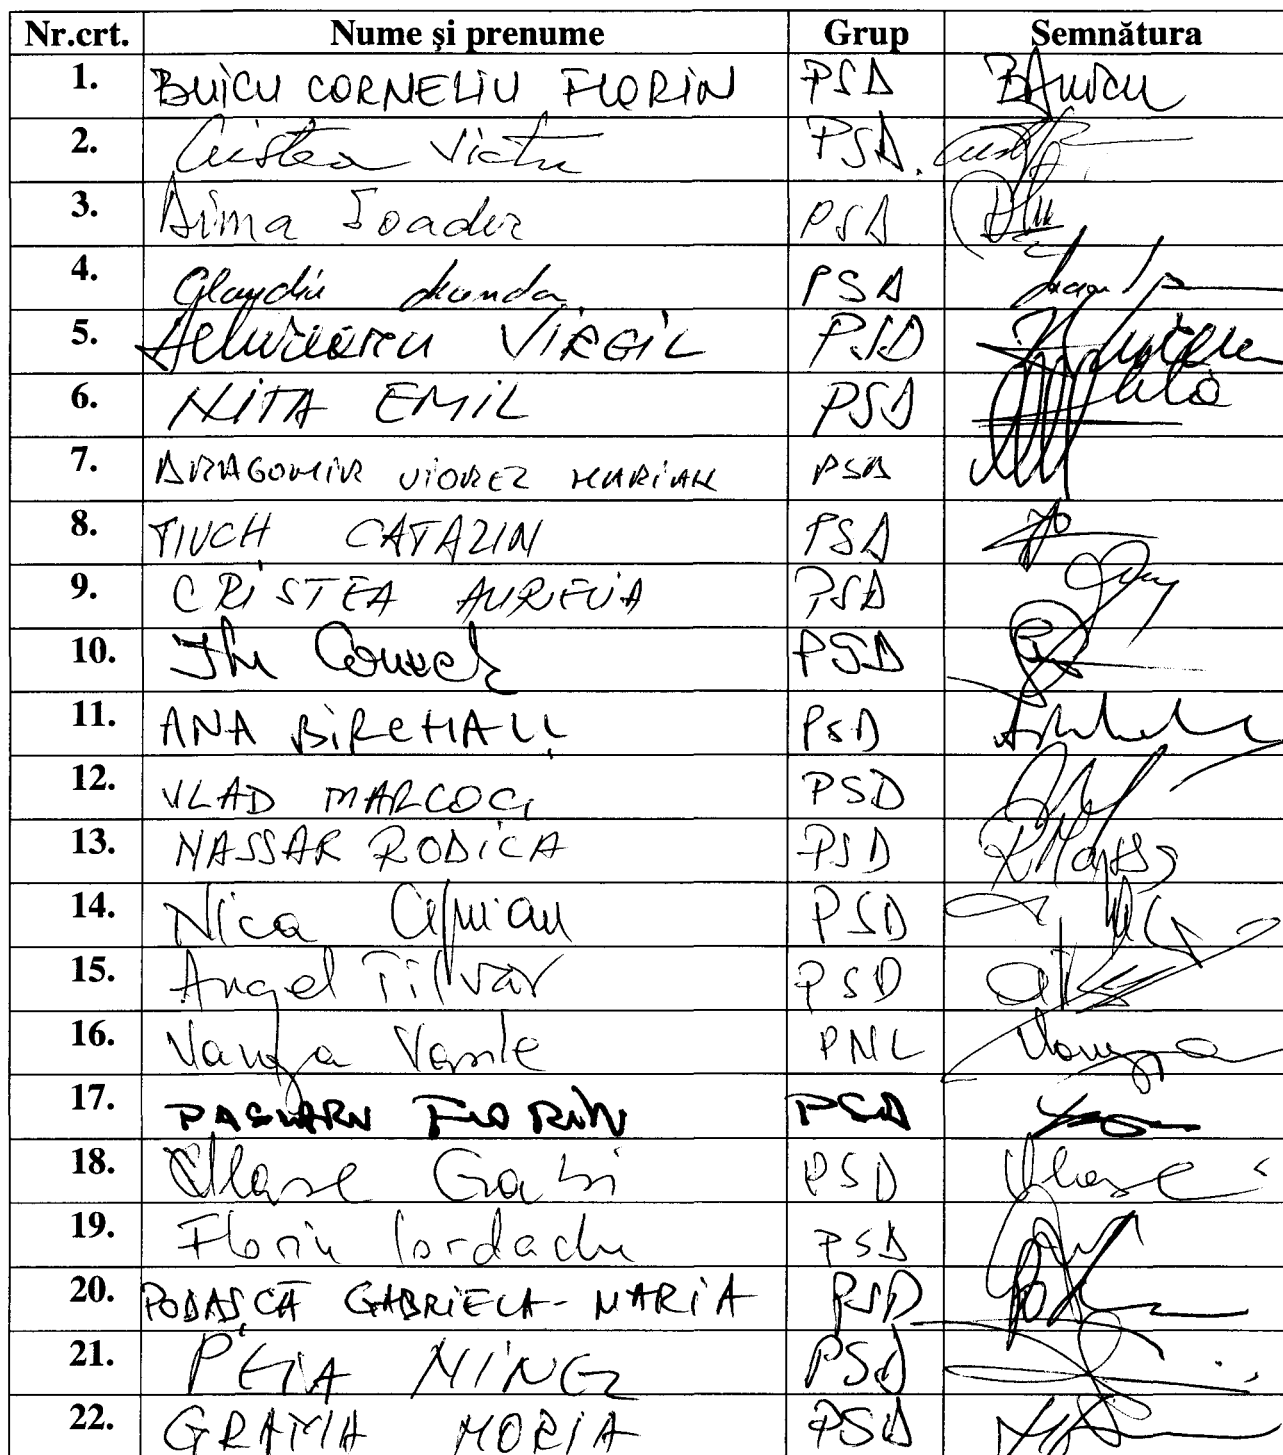 Nr.crt. Nume şi prenume Grup Semnătura
1. BUICU CORNELIU FLORIN PSD
2. Cristea Victor PSD.
3. Dima Toader PSD
4. Claudiu Manda PSD
5. VIRGIL PSD
6. NITA EMIL PSD
7. DRAGOMIR VIOREL MARIAN PSD
8. TIUCH CATALIN PSD
9. CRISTEA AURELIA PSD
10. PSD
11. ANA BIRCHALL PSD
12. VLAD MARCOCI PSD
13. NASSAR RODICA PSD
14. Nica Ciprian PSD
15. Angel Tîlvăr PSD
16. Vasile PNL
17. PASLARU FLORIN PSD
18. Vlase Gabi PSD Vlase
19. Florin Iordache PSD
20. PODAŞCĂ GABRIELA-MARIA PSD
21. PETA NINEL PSD
22. HORIA PSD